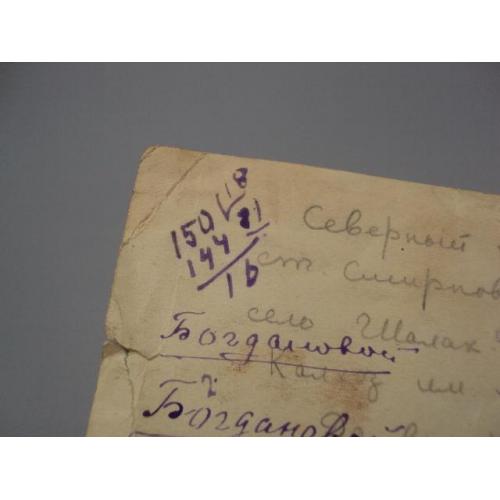 150 18
144 81
16
Северный
ст. Смирнов
село Шалах
Богдановой
Колхоз им
Богдановой